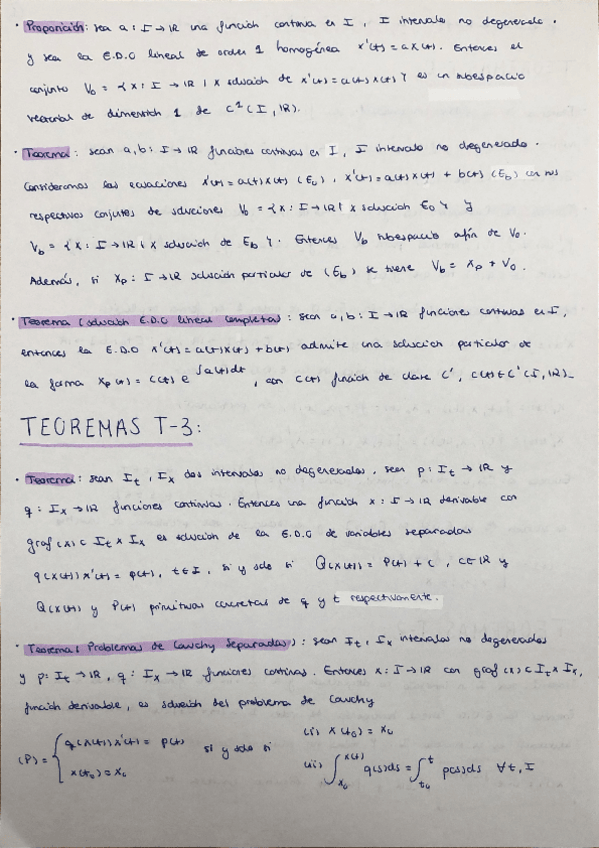 · Proposición: sea a: I → IR una función continua en I, I intervalo no degenerado.
y sea la E.D.O lineal de orden 1 homogénea x'(t) = a x(t). Entonces el
conjunto V₀ = {x: I → IR | x solución de x'(t) = a(t) x(t)} es un subespacio
vectorial de dimensión 1 de C¹(I, IR).
· Teorema: sean a, b: I → IR funciones continuas en I, I intervalo no degenerado.
Consideramos las ecuaciones x'(t) = a(t) x(t) (E₀), x'(t) = a(t) x(t) + b(t) (E_b) con sus
respectivos conjuntos de soluciones V₀ = {x: I → IR | x solución E₀} y
V_b = {x: I → IR | x solución de E_b}. Entonces V_b subespacio afín de V₀.
Además, si x_p: I → IR solución particular de (E_b) se tiene V_b = x_p + V₀.
· Teorema (solución E.D.O lineal completa): sean a, b: I → IR funciones continuas en I,
entonces la E.D.O x'(t) = a(t) x(t) + b(t) admite una solución particular de
la forma x_p(t) = c(t) e^∫a(t)dt, con c(t) función de clase C', c(t) ∈ C'(I, IR).
TEOREMAS T-3:
· Teorema: sean I_t, I_x dos intervalos no degenerados. sean p: I_t → IR y
q: I_x → IR funciones continuas. Entonces una función x: I → IR derivable con
graf(x) ⊂ I_t × I_x es solución de la E.D.O de variables separadas
q(x(t)) x'(t) = p(t), t ∈ I, si y solo si Q(x(t)) = P(t) + C, C ∈ IR y
Q(x(t)) y P(t) primitivas concretas de q y t respectivamente.
· Teorema (Problemas de Cauchy Separadas): sean I_t, I_x intervalos no degenerados
y p: I_t → IR, q: I_x → IR funciones continuas. Entonces x: I → IR con graf(x) ⊂ I_t × I_x,
función derivable, es solución del problema de Cauchy
(P) = { q(x(t)) x'(t) = p(t) si y solo si (i) x(t₀) = x₀
x(t₀) = x₀ (ii) ∫_{x₀}^{x(t)} q(s)ds = ∫_{t₀}^{t} p(s)ds ∀t, I